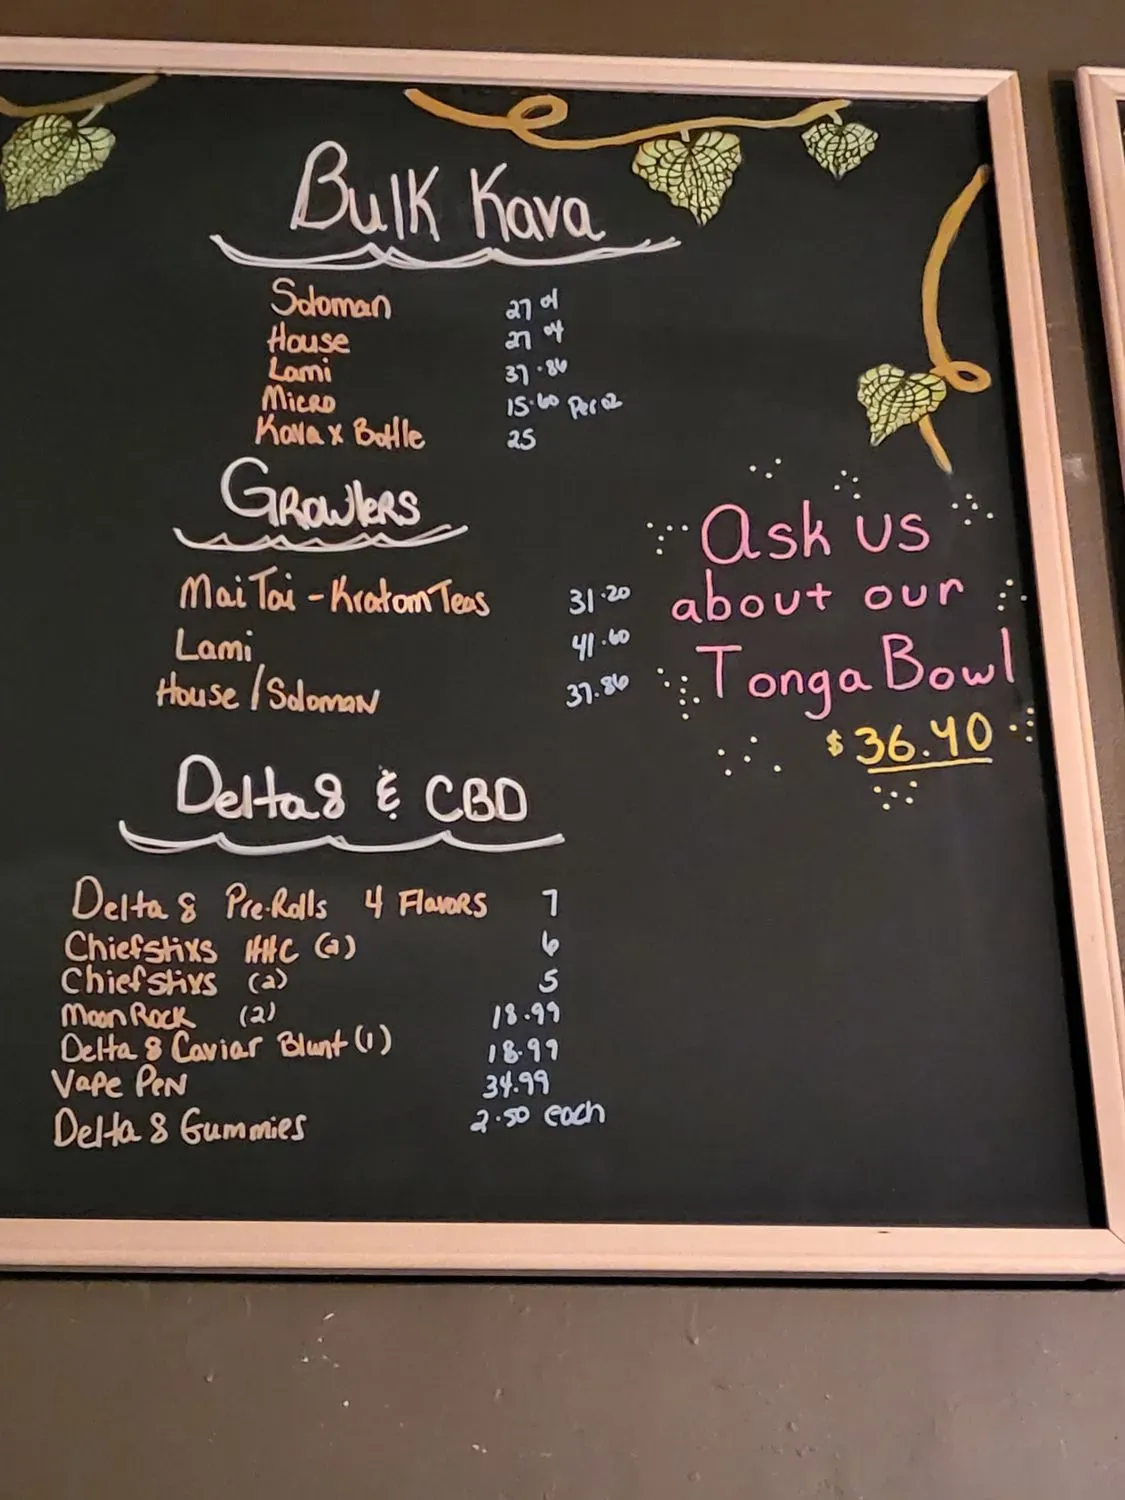 Bulk Kava
Soloman 27.04
House 27.04
Lami 37.86
Micro 15.60 Per oz
Kava x Bottle 25
Growlers
Mai Tai - Kratom Teas 31.20
Lami 41.60
House / Soloman 37.86
Ask us
about our
Tonga Bowl
$36.40
Delta 8 & CBD
Delta 8 Pre-Rolls 4 Flavors 7
Chiefstixs HHC (2) 6
Chiefstixs (2) 5
Moon Rock (2) 18.99
Delta 8 Caviar Blunt (1) 18.99
Vape Pen 34.99
Delta 8 Gummies 2.50 each